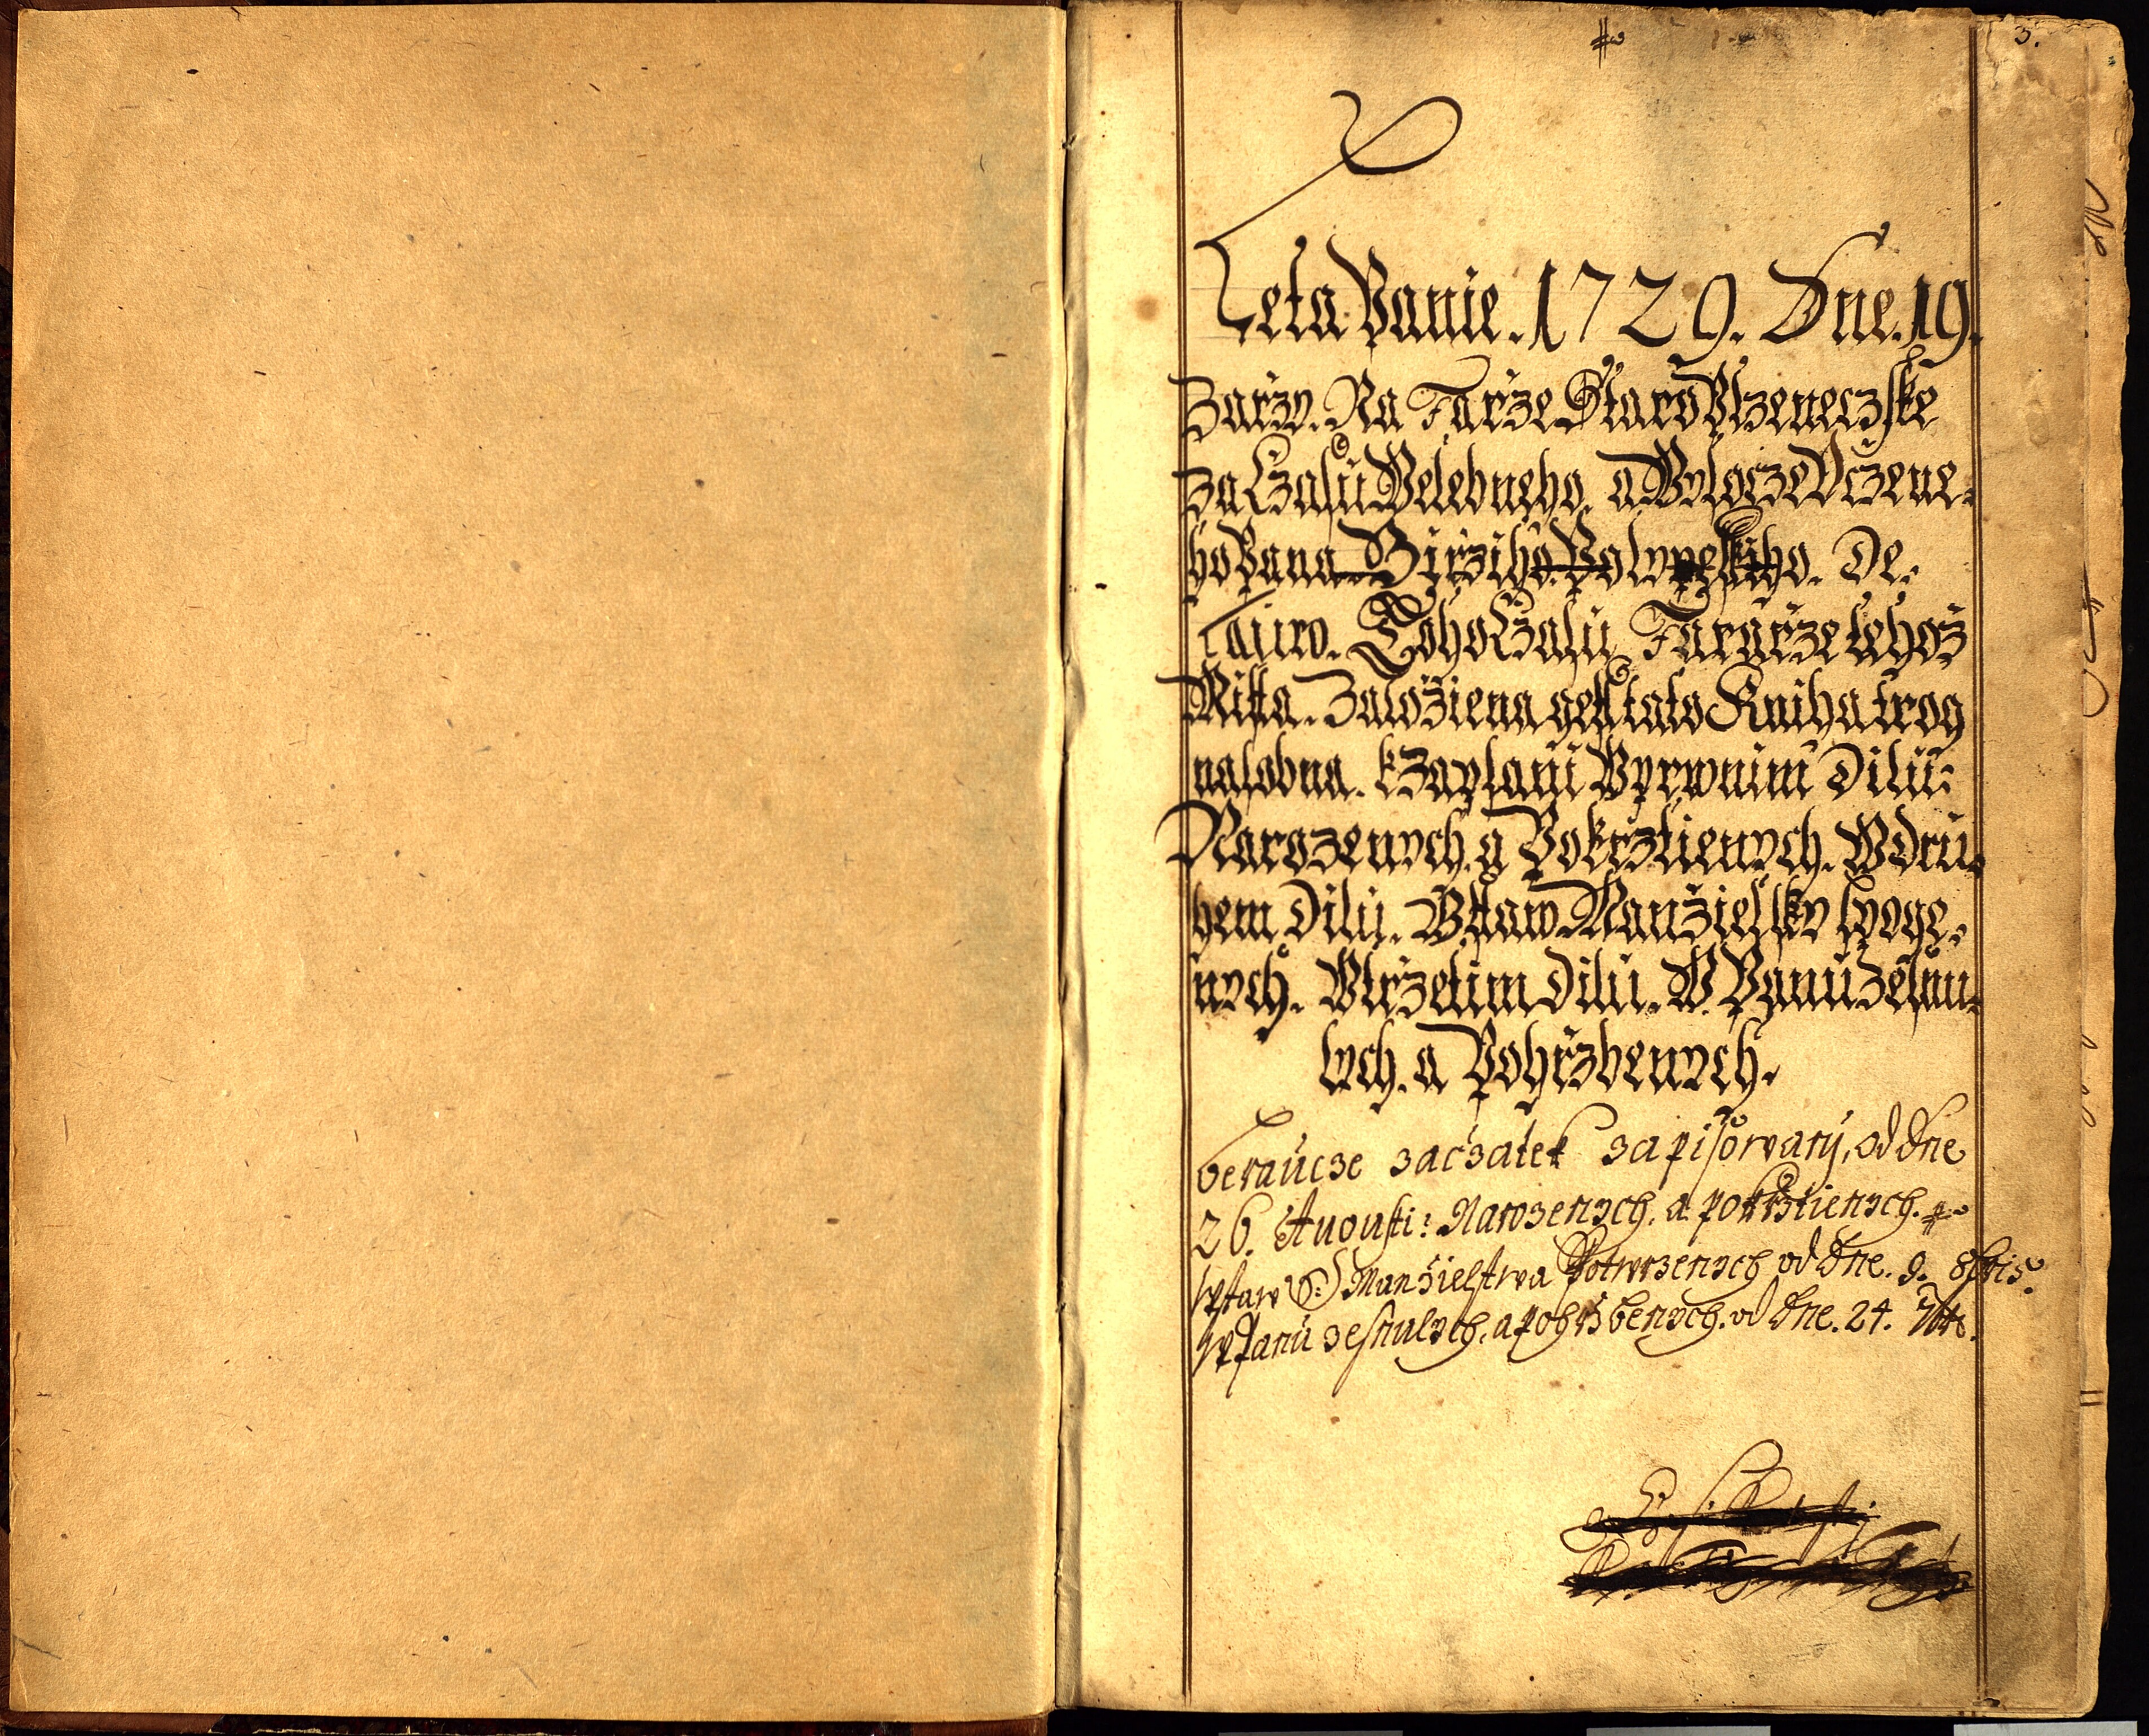 3.
Leta Panie. 1729. Dne. 19.
Zarzy. Na Farze Staro Plzeneczske
za Czasu Welebneho, a Wylocze Uczene-
ho Pana Girziho De-
Tauro. Toho Czasu Fararze tehoz
Mista. Zalożiena gest tato Kniha trog
nasobna. k Zapsanii W prwnim Dilu:
Narozenych. a Pokrztienych. W dru-
hem Dilu. W staw Manżielsky spoge-
nych. W trzetim Dilu. W Panu Zesnu-
lych. a Pohrzbenych.
beraucze začzatek zapisowanj, od dne
26. Augusti: Narozenych, a pokrztienych.
W staw S: Manżielstwa Potwrzenych od dne. 9. 8bris.
W Panu zesnulych, a pohrzbenych. od dne. 24.